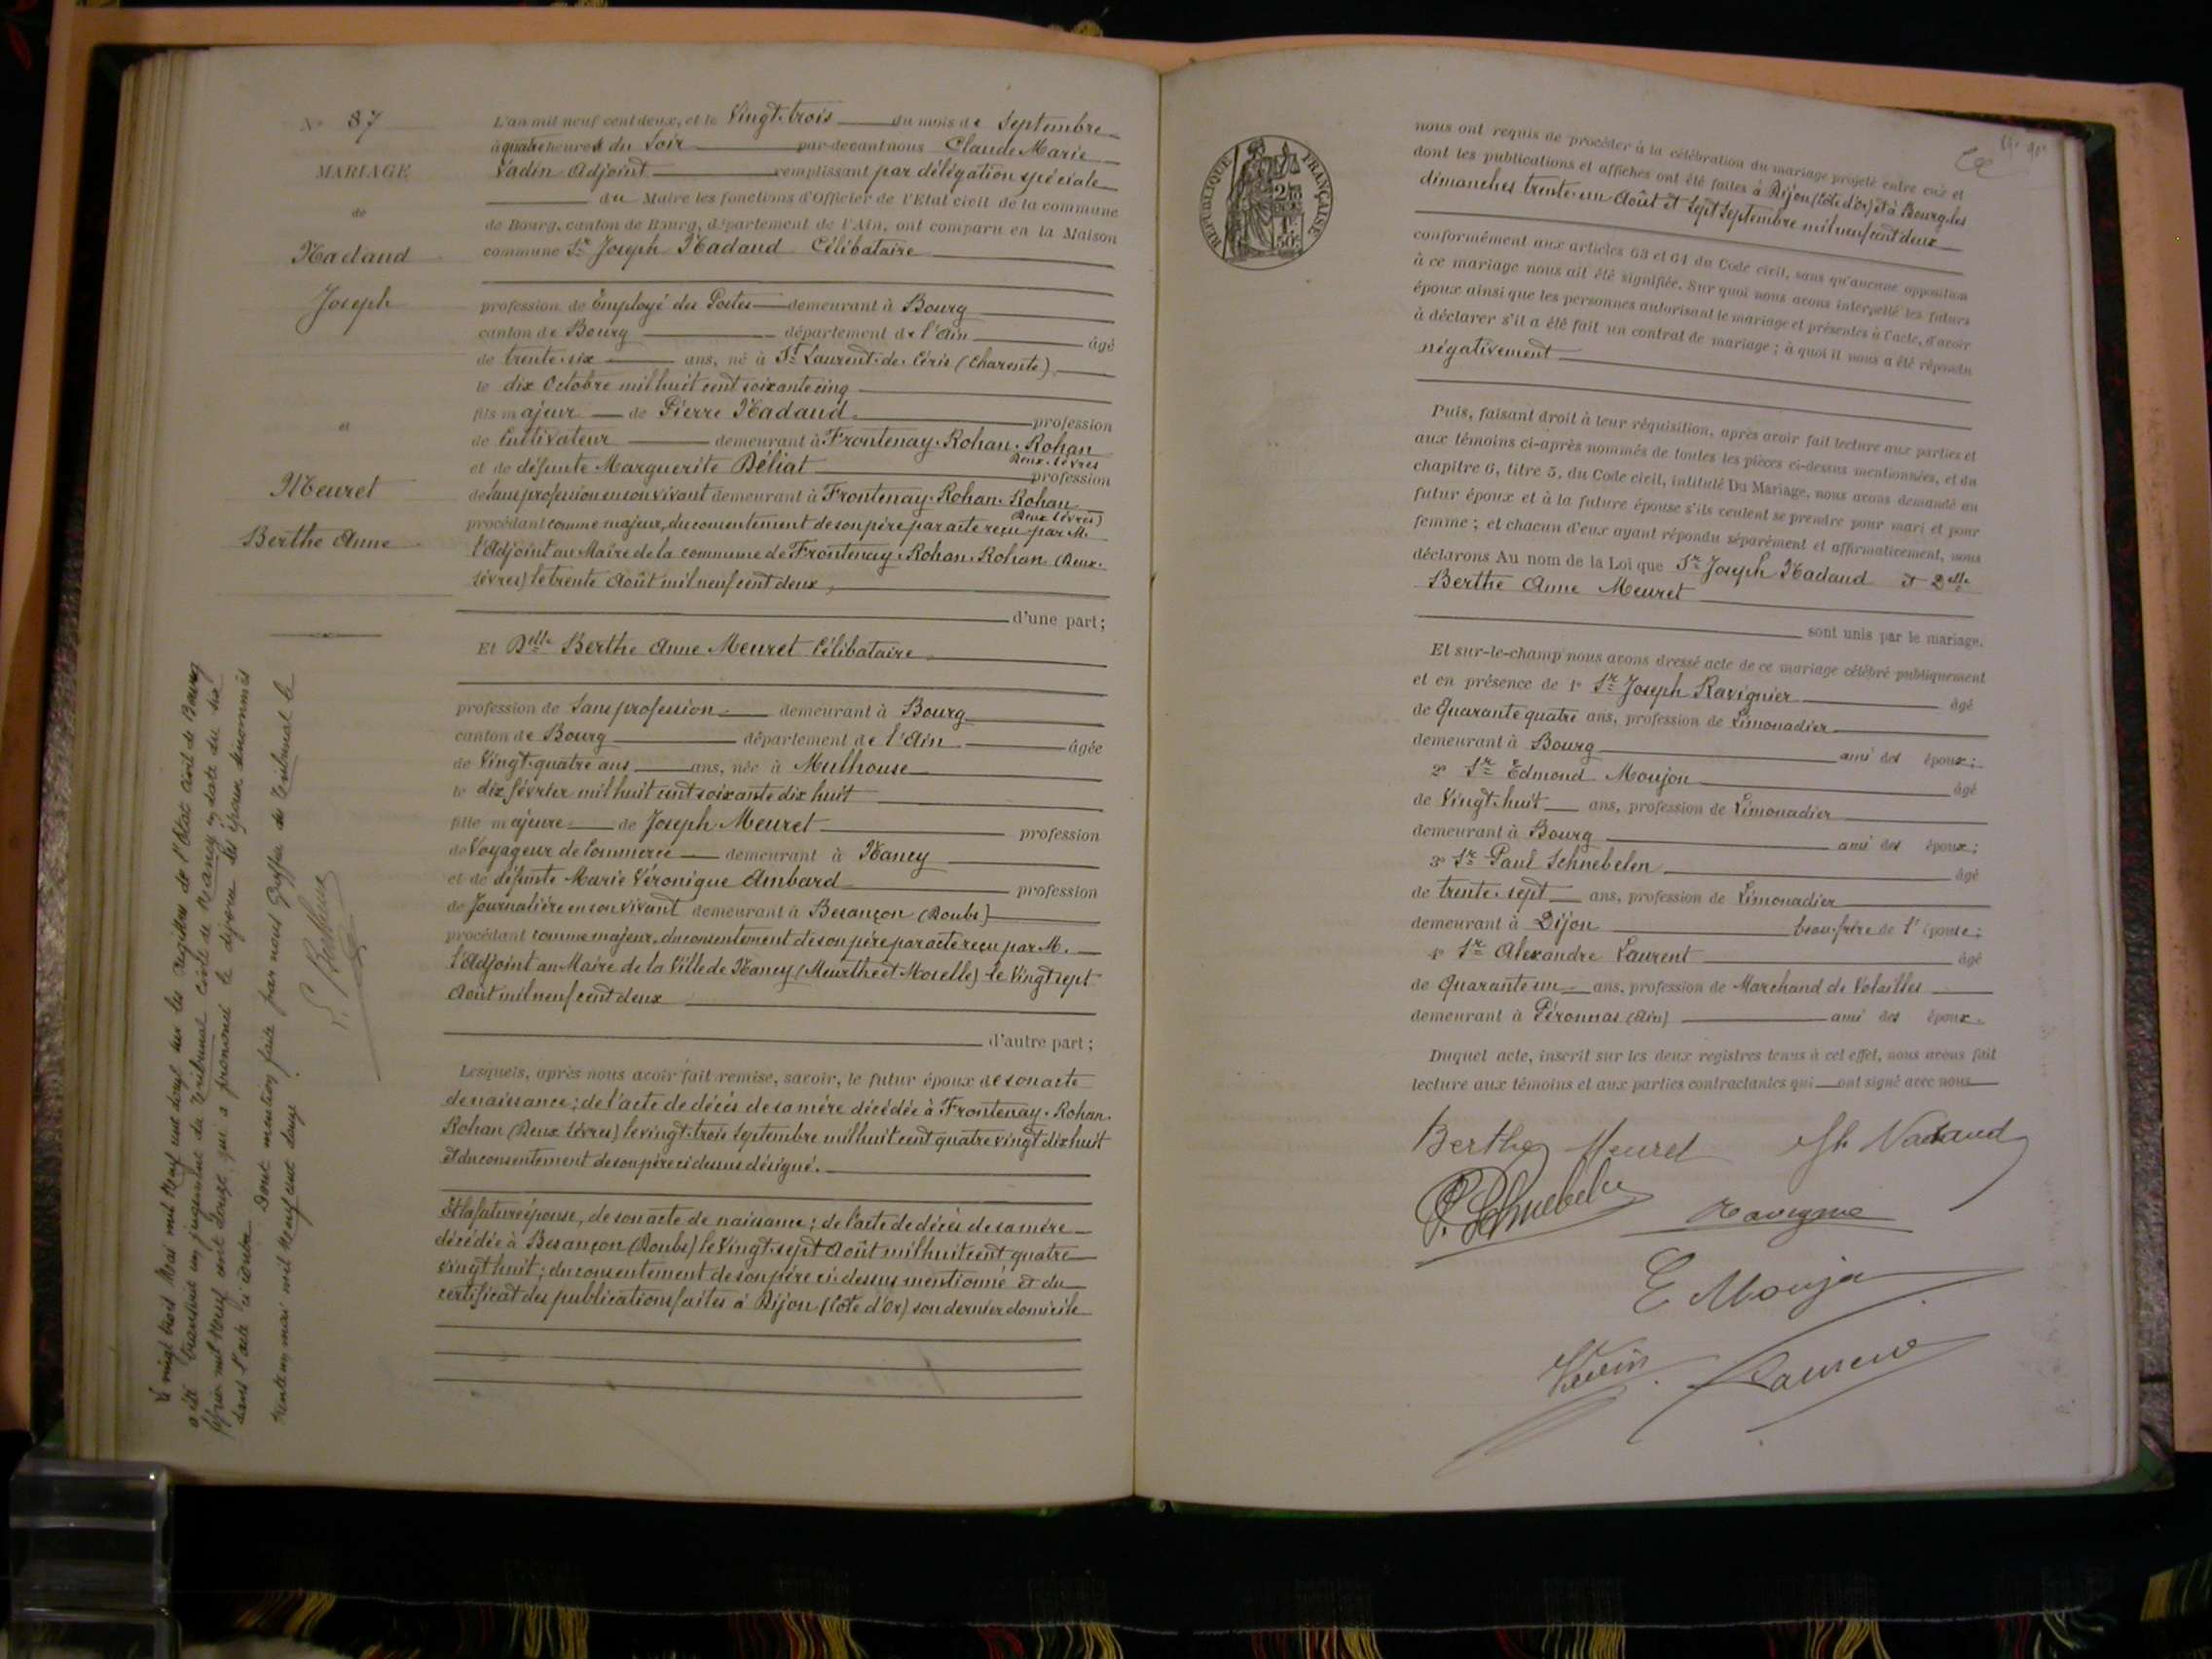 N° 87
MARIAGE
de
Nadaud
Joseph
et
Meuret
Berthe Anne
L'an mil neuf cent deux, et le Vingt-trois du mois de Septembre
à quatre heures du Soir par-devant nous Claude Marie
Vadin Adjoint remplissant par délégation spéciale
du Maire les fonctions d'Officier de l'Etat civil de la commune
de Bourg, canton de Bourg, département de l'Ain, ont comparu en la Maison
commune Sr Joseph Nadaud Célibataire
profession de Employé des Postes demeurant à Bourg
canton de Bourg département de l'Ain âgé
de trente-six ans, né à St Laurent-de-Céris (Charente)
le dix Octobre mil huit cent soixante cinq
fils majeur de Pierre Nadaud profession
de Cultivateur demeurant à Frontenay-Rohan-Rohan
Deux-Sèvres
et de défunte Marguerite Déliat profession
de Sans profession en son vivant demeurant à Frontenay-Rohan-Rohan
(Deux Sèvres)
procédant comme majeur, du consentement de son père par acte reçu par M.
l'Adjoint au Maire de la commune de Frontenay-Rohan-Rohan (Deux-
Sèvres) le trente Août mil neuf cent deux,
d'une part;
Et Delle Berthe Anne Meuret Célibataire
profession de Sans profession demeurant à Bourg
canton de Bourg département de l'Ain âgée
de Vingt-quatre ans ans, née à Mulhouse
le dix février mil huit cent soixante dix huit
fille majeure de Joseph Meuret profession
de Voyageur de Commerce demeurant à Nancy
et de défunte Marie Véronique Ambard profession
de Journalière en son vivant demeurant à Besançon (Doubs)
procédant comme majeure, du consentement de son père par acte reçu par M.
l'Adjoint au Maire de la Ville de Nancy (Meurthe et Moselle) le Vingt sept
Août mil neuf cent deux
d'autre part;
Lesquels, après nous avoir fait remise, savoir, le futur époux de son acte
de naissance; de l'acte de décès de sa mère décédée à Frontenay-Rohan-
Rohan (Deux Sèvres) le vingt-trois Septembre mil huit cent quatre vingt dix huit
et du consentement de son père ci dessus désigné.
Et la future épouse, de son acte de naissance; de l'acte de décès de sa mère
décédée à Besançon (Doubs) le Vingt-sept Août mil huit cent quatre
vingt huit; du consentement de son père ci-dessus mentionné et du
certificat des publications faites à Dijon (Côte d'Or) son dernier domicile
Le vingt trois Mai mil Neuf cent douze sur les registres de l'état civil de Bourg
a été transcrit un jugement du Tribunal Civil de Nancy en date du six
février mil Neuf cent Douze qui a prononcé le divorce des époux dénommés
dans l'acte ci contre
Dont mention faite par nous Greffier du Tribunal le
trente un mai mil Neuf cent douze.
RÉPUBLIQUE FRANÇAISE
nous ont requis de procéder à la célébration du mariage projeté entre eux et
dont les publications et affiches ont été faites à Dijon (Côte d'Or) et à Bourg les
dimanches trente-un Août et Sept Septembre mil neuf cent deux
conformément aux articles 63 et 64 du Code civil, sans qu'aucune opposition
à ce mariage nous ait été signifiée. Sur quoi nous avons interpellé les futurs
époux ainsi que les personnes autorisant le mariage et présentes à l'acte, d'avoir
à déclarer s'il a été fait un contrat de mariage; à quoi il nous a été répondu
négativement
Puis, faisant droit à leur réquisition, après avoir fait lecture aux parties et
aux témoins ci-après nommés de toutes les pièces ci-dessus mentionnées, et du
chapitre 6, titre 5, du Code civil, intitulé Du Mariage, nous avons demandé au
futur époux et à la future épouse s'ils veulent se prendre pour mari et pour
femme; et chacun d'eux ayant répondu séparément et affirmativement, nous
déclarons Au nom de la Loi que Sr Joseph Nadaud et Delle
Berthe Anne Meuret
sont unis par le mariage.
Et sur-le-champ nous avons dressé acte de ce mariage célébré publiquement
et en présence de 1° Sr Joseph Ravignier âgé
de Quarante quatre ans, profession de Limonadier
demeurant à Bourg ami des époux;
2° Sr Edmond Moujon âgé
de Vingt-huit ans, profession de Limonadier
demeurant à Bourg ami des époux;
3° Sr Paul Schnebelen âgé
de trente-sept ans, profession de Limonadier
demeurant à Dijon beau-frère de l'épouse;
4° Sr Alexandre Laurent âgé
de Quarante un ans, profession de Marchand de Volailles
demeurant à Péronnas (Ain) ami des époux.
Duquel acte, inscrit sur les deux registres tenus à cet effet, nous avons fait
lecture aux témoins et aux parties contractantes qui ont signé avec nous
Berthe Meuret Nadaud
P. Schnebelen
E Moujon
Vadin Laurent